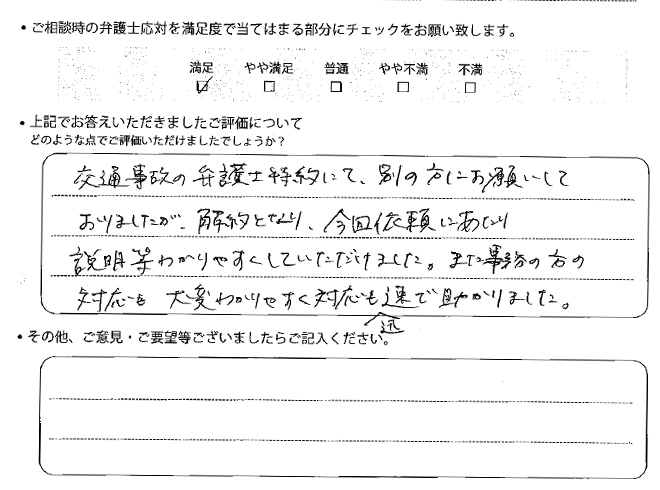 ・ご相談時の弁護士応対を満足度で当てはまる部分にチェックをお願い致します。
満足 やや満足 普通 やや不満 不満
☑ □ □ □ □
・上記でお答えいただきましたご評価について
どのような点でご評価いただけましたでしょうか？
交通事故の弁護士特約にて、別の方にお願いして
おりましたが、解約となり、今回依頼にあたり
説明等わかりやすくしていただけました。また事務の方の
対応も大変わかりやすく対応も迅速で助かりました。
・その他、ご意見・ご要望等ございましたらご記入ください。